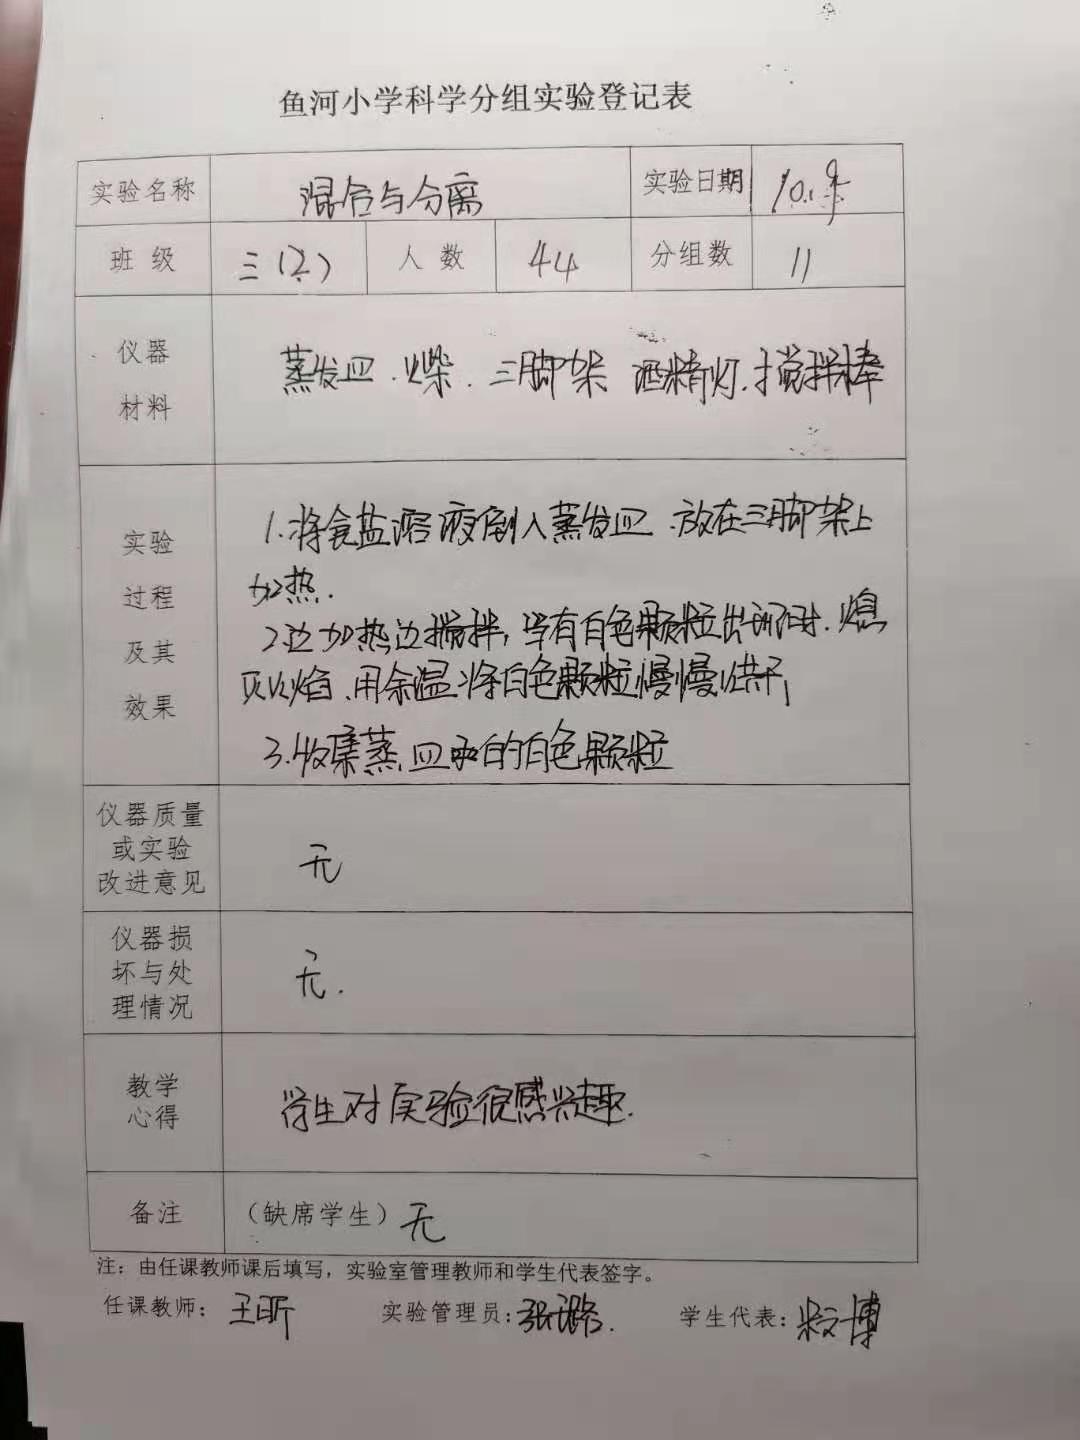 鱼河小学科学分组实验登记表
实验名称 混合与分离 实验日期
班级 三(2) 人数 44 分组数 11
仪器
材料
蒸发皿.火柴.三脚架 酒精灯.搅拌棒
实验
过程
及其
效果
1.将食盐溶液倒入蒸发皿.放在三脚架上
加热.
2边加热边搅拌,当有白色颗粒出现时.熄
灭火焰.用余温将白色颗粒慢慢烘干,
3.收集蒸皿中的白色颗粒
仪器质量
或实验
改进意见
无
仪器损
坏与处
理情况
无.
教学
心得
学生对实验很感兴趣.
备注 (缺席学生) 无
注：由任课教师课后填写，实验室管理教师和学生代表签字。
任课教师：王昕 实验管理员：张璐. 学生代表：